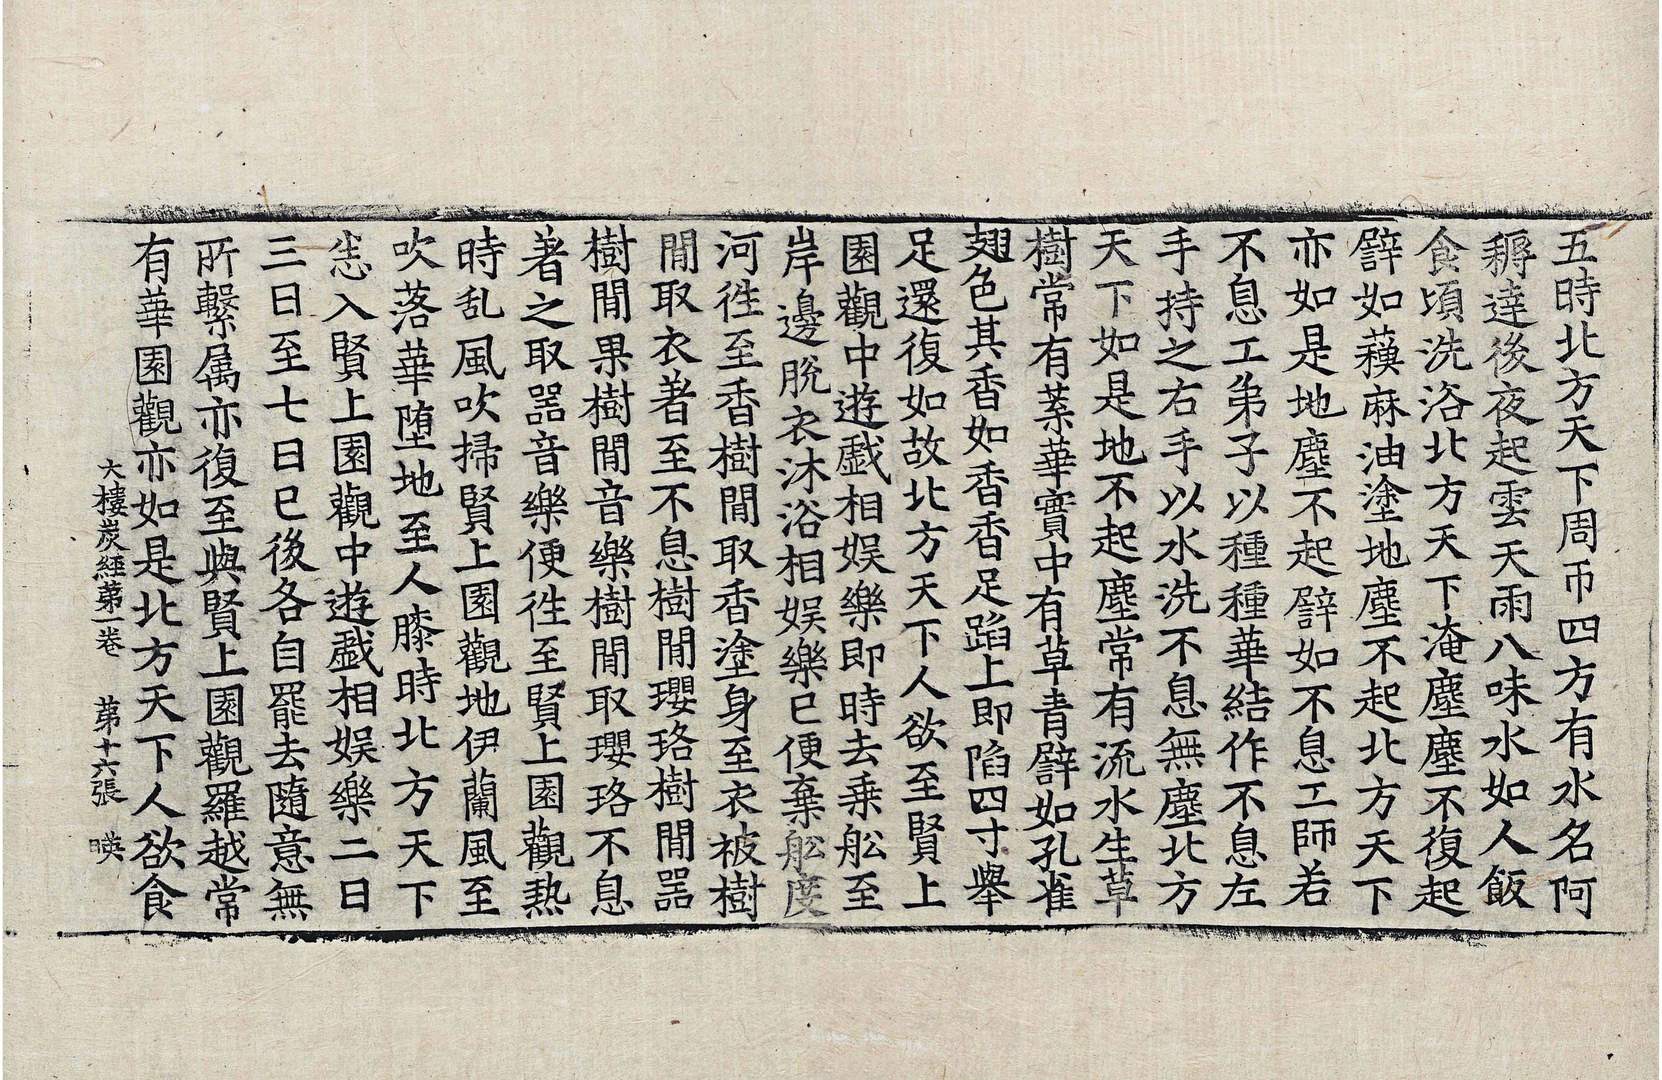 五時北方天下周帀四方有水名阿
耨達後夜起雲天雨八味水如人飯
食頃洗浴北方天下淹塵塵不復起
譬如蘓麻油塗地塵不起北方天下
亦如是地塵不起譬如不息工師若
不息工弟子以種種華結作不息左
手持之右手以水洗不息無塵北方
天下如是地不起塵常有流水生草
樹常有葉華實中有草青譬如孔雀
翅色其香如香香足蹈上即陷四寸舉
足還復如故北方天下人欲至賢上
園觀中遊戲相娱樂即時去乗舩至
岸邊脫衣沐浴相娱樂已便棄舩度
河徃至香樹閒取香塗身至衣被樹
閒取衣著至不息樹閒瓔珞樹閒器
樹閒果樹閒音樂樹閒取瓔珞不息
著之取器音樂便徃至賢上園觀熱
時乱風吹掃賢上園觀地伊蘭風至
吹落華墮地至人膝時北方天下
人入賢上園觀中遊戲相娱樂二日
三日至七日已後各自罷去隨意無
所繫属亦復至與賢上園觀羅越常
有華園觀亦如是北方天下人欲食
大樓炭經第一卷　第十六張　暎